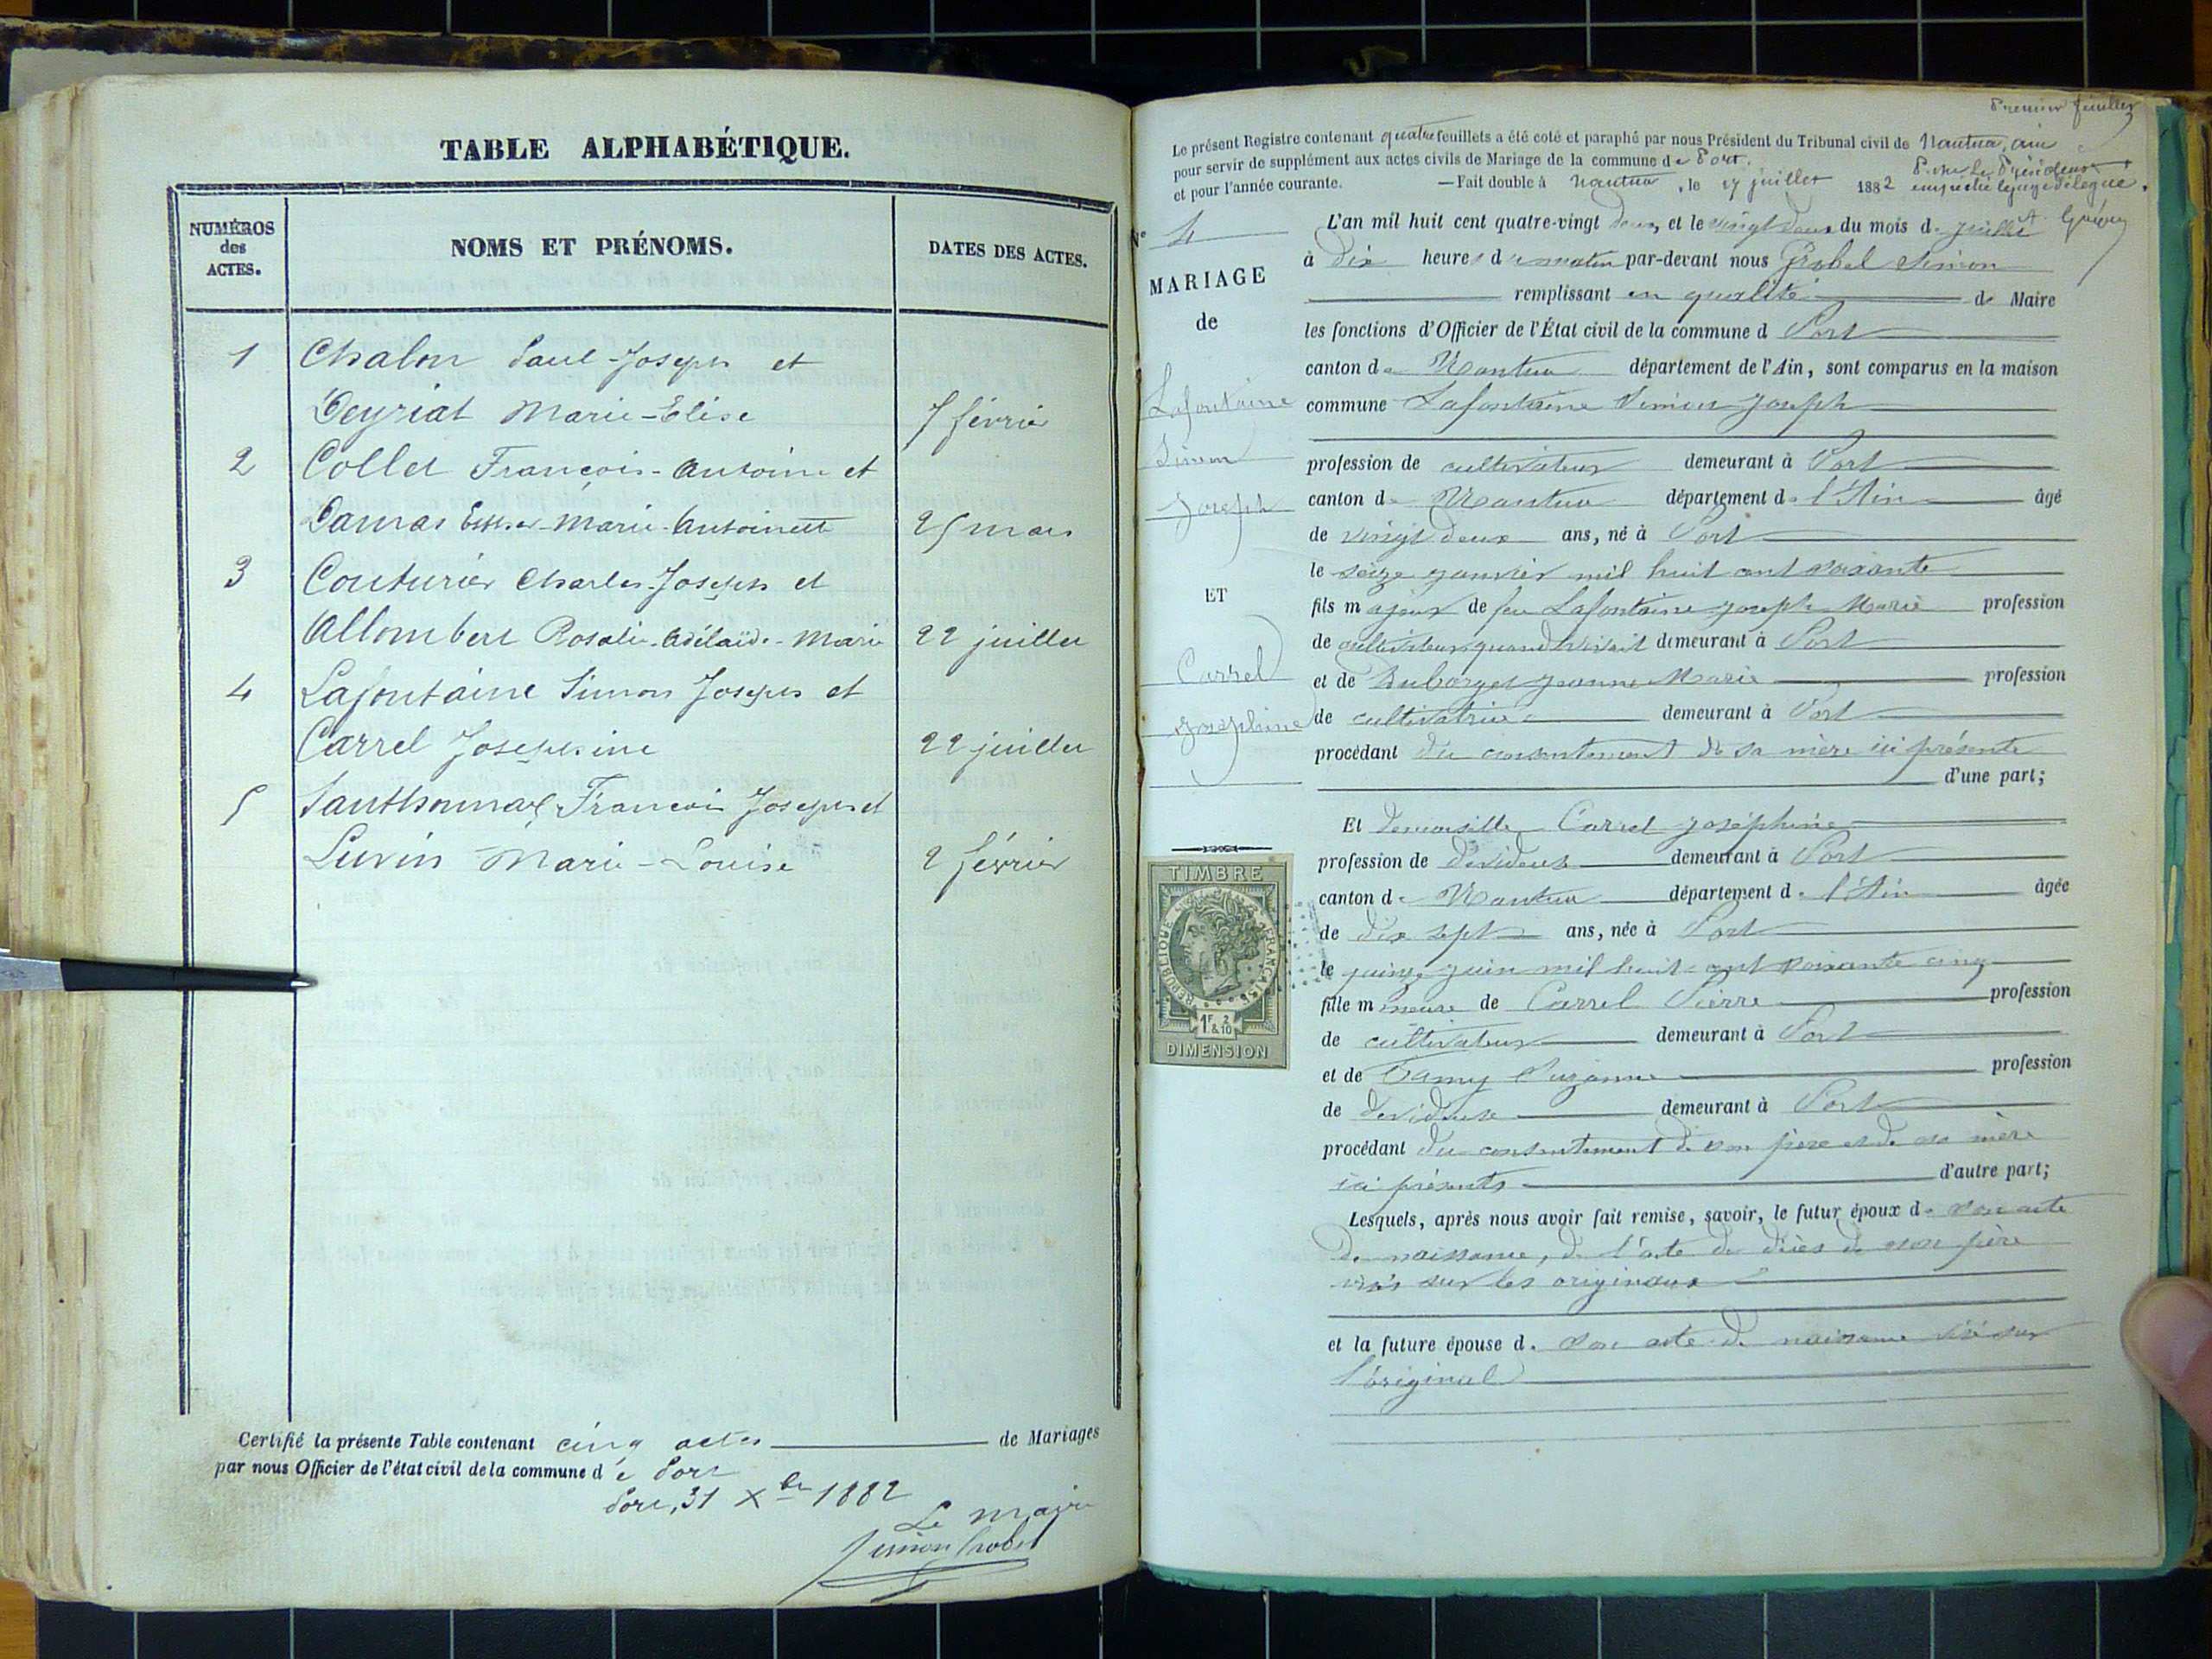 TABLE ALPHABÉTIQUE.
NUMÉROS des ACTES.
NOMS ET PRÉNOMS.
DATES DES ACTES.
1 Chalon Paul-Joseph et
Deyriat Marie-Elise 7 février
2 Collet François-Antoine et
Marie-Antoinette 25 mars
3 Couturier Charles-Joseph et
Allombert Rosalie-Adélaïde-Marie 22 juillet
4 Lafontaine Simon Joseph et
Carrel Josephine 22 juillet
5 Santhonnax François Joseph et
Luvin Marie-Louise 2 février
Certifié la présente Table contenant cinq actes de Mariages
par nous Officier de l'état civil de la commune d e Port
Port, 31 Xbre 1882
Le Maire
Simon Grobel
Premier feuillet
Le présent Registre contenant quatre feuillets a été coté et paraphé par nous Président du Tribunal civil de Nantua, ain
pour servir de supplément aux actes civils de Mariage de la commune de Port.
et pour l'année courante. — Fait double à Nantua, le 17 juillet 1882
P. Le Président
empêché le juge délégué.
N° 4
MARIAGE
de
Lafontaine
Simon
Joseph
ET
Carrel
Joséphine
TIMBRE
RÉPUBLIQUE FRANÇAISE
1F 2 & 10
DIMENSION
L'an mil huit cent quatre-vingt deux et le vingt deux du mois de juillet
à dix heures du matin par-devant nous Grobel Simon
remplissant en qualité de Maire
les fonctions d'Officier de l'État civil de la commune d Port
canton de Nantua département de l'Ain, sont comparus en la maison
commune Lafontaine Simon Joseph
profession de cultivateur demeurant à Port
canton de Nantua département de l'Ain âgé
de vingt deux ans, né à Port
le seize janvier mil huit cent soixante
fils majeur de feu Lafontaine Joseph Marie profession
de cultivateur quand vivait demeurant à Port
et de Duborget Jeanne Marie profession
de cultivatrice demeurant à Port
procédant du consentement de sa mère ici présente
d'une part;
Et demoiselle Carrel Joséphine
profession de dévideuse demeurant à Port
canton de Nantua département de l'Ain âgée
de dix sept ans, née à Port
le quinze juin mil huit cent soixante cinq
fille mineure de Carrel Pierre profession
de cultivateur demeurant à Port
et de Tamy Suzanne profession
de dévideuse demeurant à Port
procédant du consentement de son père et de sa mère
ici présents d'autre part;
Lesquels, après nous avoir fait remise, savoir, le futur époux de son acte
de naissance, de l'acte de décès de son père
visés sur les originaux
et la future épouse de son acte de naissance visé sur
l'original